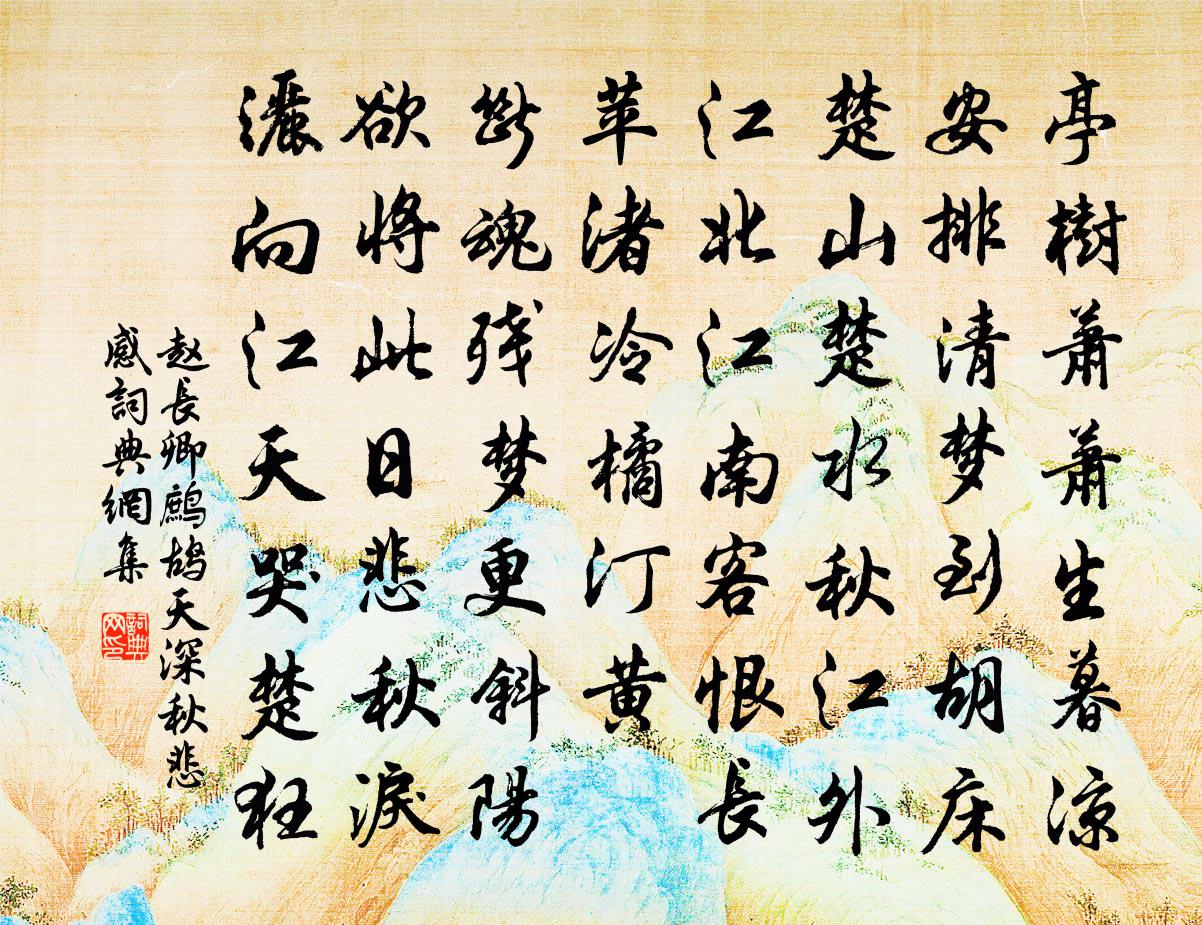 亭樹萧萧生暮凉
安排清梦到胡床
楚山楚水秋江外
江北江南客恨長
苹渚冷橘汀黄
斷魂残梦更斜陽
欲将此日悲秋淚
灑向江天哭楚狂
赵長卿鷓鴣天深秋悲
感詞典網集
詞典
网印